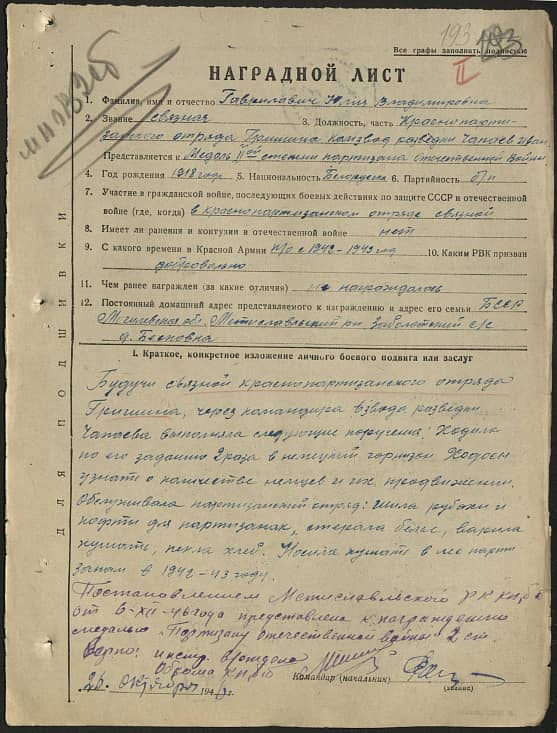 193
293
Все графы заполнять полностью
II
НАГРАДНОЙ ЛИСТ
1. Фамилия, имя и отчество Гаврилович Юлия Владимировна
2. Звание связная 3. Должность, часть Краснопарти-
занского отряда Гришина комвзвод разведки Чапаев Иван
Представляется к Медаль IIой степени партизана Отечественной Войны
4. Год рождения 1918 год 5. Национальность Белоруска 6. Партийность б/п
7. Участие в гражданской войне, последующих боевых действиях по защите СССР и отечественной
войне (где, когда) в краснопартизанском отряде связной
8. Имеет ли ранения и контузии в отечественной войне нет
9. С какого времени в Красной Армии п/о с 1942-1943 год 10. Каким РВК призван
добровольно
11. Чем ранее награжден (за какие отличия) не награждалась
12. Постоянный домашний адрес представляемого к награждению и адрес его семьи БССР
Могилевская обл. Мстиславльский р-н Заболотский с/с
д.
I. Краткое, конкретное изложение личного боевого подвига или заслуг
Будучи связной краснопартизанского отряда
Гришина, через командира взвода разведки
Чапаева выполняла следующие поручения: Ходила
по его заданию 2 раза в немецкий гарнизон Ходосы
узнать о количестве немцев и их продвижении.
Обслуживала партизанский отряд: шила рубахи и
кофты для партизанок, стирала белье, варила
кушать, пекла хлеб. Носила кушать в лес парти
занам в 1942-43 году.
Постановлением Мстиславльского РК КП/б/Б
от 6-XII-46 года представлена к награждению
медалью "Партизану отечественной войны" 2 ст.
Верно: инстр. в/отдела
Обкома КП/б/Б
Командир (начальник)
(звание)
26 октября 194 г.
ДЛЯ ПОДШИВКИ